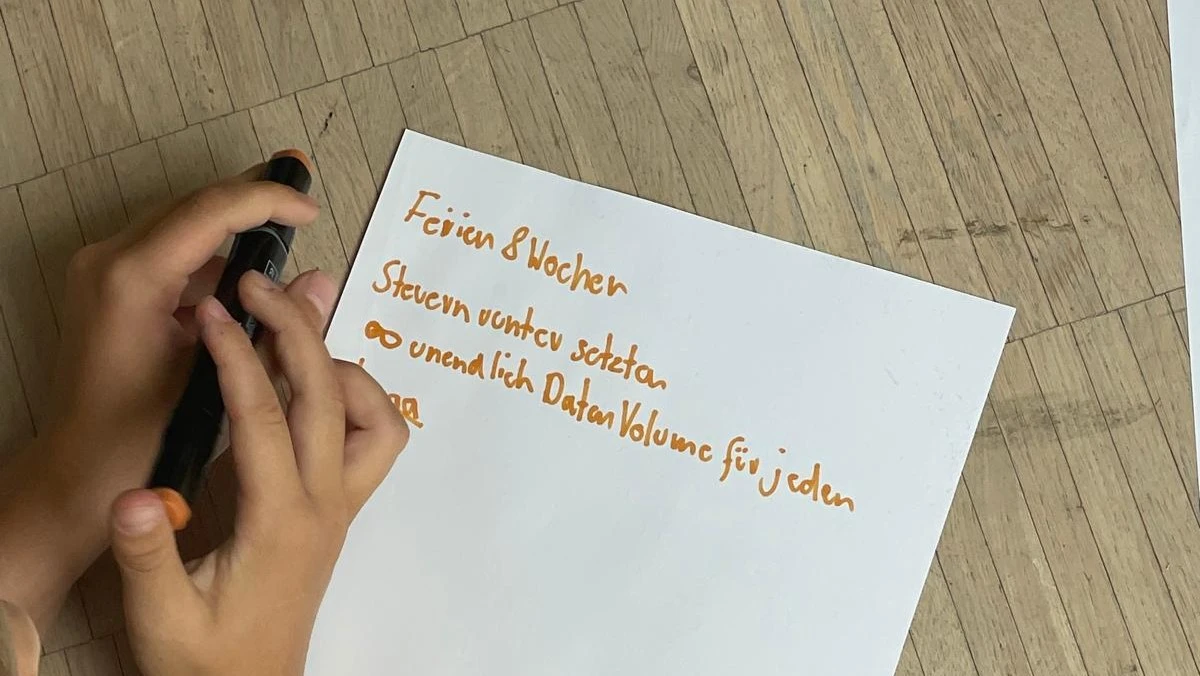 Ferien 8 Wochen
Steuern runter setzten
∞ unendlich Daten Volume für jeden